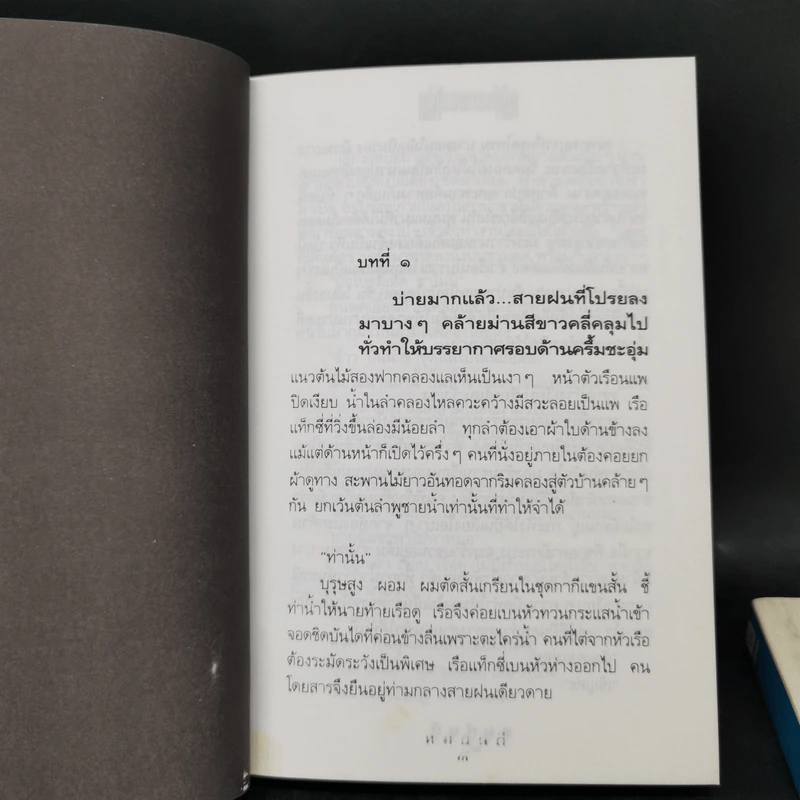 บทที่ ๑
บ่ายมากแล้ว...สายฝนที่โปรยลง
มาบาง ๆ คล้ายม่านสีขาวคลี่คลุมไป
ทั่วทำให้บรรยากาศรอบด้านครึ้มชะอุ่ม
แนวต้นไม้สองฟากคลองแลเห็นเป็นเงา ๆ หน้าตัวเรือนแพ
ปิดเงียบ น้ำในลำคลองไหลควะคว้างมีสวะลอยเป็นแพ เรือ
แท็กซี่ที่วิ่งขึ้นล่องมีน้อยลำ ทุกลำต้องเอาผ้าใบด้านข้างลง
แม้แต่ด้านหน้าก็เปิดไว้ครึ่ง ๆ คนที่นั่งอยู่ภายในต้องคอยยก
ผ้าดูทาง สะพานไม้ยาวอันทอดจากริมคลองสู่ตัวบ้านคล้าย ๆ
กัน ยกเว้นต้นลำพูชายน้ำเท่านั้นที่ทำให้จำได้
"ท่านั้น"
บุรุษสูง ผอม ผมตัดสั้นเกรียนในชุดกากีแขนสั้น ชี้
ท่าน้ำให้นายท้ายเรือดู เรือจึงค่อยเบนหัวทวนกระแสน้ำเข้า
จอดชิดบันไดที่ค่อนข้างลื่นเพราะตะไคร่น้ำ คนที่ไต่จากหัวเรือ
ต้องระมัดระวังเป็นพิเศษ เรือแท็กซี่เบนหัวห่างออกไป คน
โดยสารจึงยืนอยู่ท่ามกลางสายฝนเดียวดาย